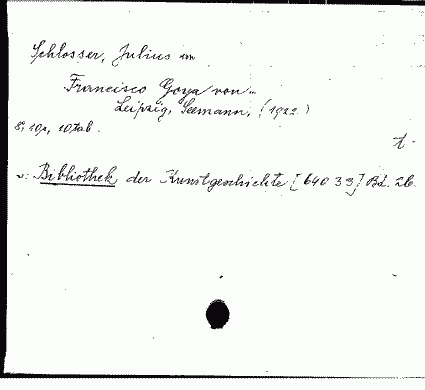 Schlosser, Julius von
Francisco Goya von..
Leipzig, Seemann, (1922)
8, 10p, 10 tab.
t.
v: Bibliothek der Kunstgeschichte [64039] Bd. 26.